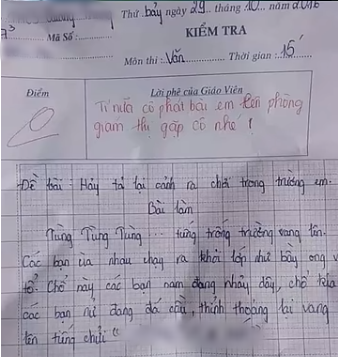 Thứ bảy ngày 29 tháng 10 năm 2016
Mã Số: KIỂM TRA
Môn thi: Văn Thời gian: 15'
Điểm Lời phê của Giáo Viên
Tí nữa cô phát bài em lên phòng
giám thị gặp cô nhé!
Đề bài: Hãy tả lại cảnh ra chơi trong trường em.
Bài làm
Tùng Tùng Tùng ... tiếng trống trường vang lên.
Các bạn ùa nhau chạy ra khỏi lớp như bầy ong v
tổ. Chỗ này các bạn nam đang nhảy dây, chỗ kia
các bạn nữ đang đá cầu, thỉnh thoảng lại vang
lên tiếng chửi "